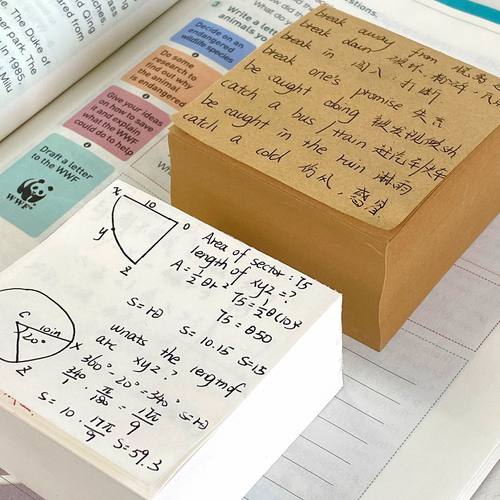 The Duke of
er park. The
in 1985,
Milu
and Qing
Write a lett
animals yo
Decide on an
endangered
wildlife species
Do some
research to
find out why
the animal
is endangered
Give your ideas
on how to save
it and explain
what the WWF
could do to help
Draft a letter
to the WWF
WWF
break away from
break down 破坏. 粉碎.
break in 闯入. 打断
break one's promise 失言
be caught doing 被发现做
catch a bus / train 赶汽车/火车
be caught in the rain 淋雨
catch a cold 伤风, 感冒
x 10 0
y
z
Area of sector: 75
length of xyz = ?
A = ½ θr²
75 = ½ θ(10)²
75 = θ50
S = rθ
S = 10·1.5 S = 15
C 10in
20°
x
z
whats the length of
arc xyz?
360° - 20° = 340°
340/1 · π/180 = 17π/9 S = rθ
S = 10 · 17π/9 S = 59.3